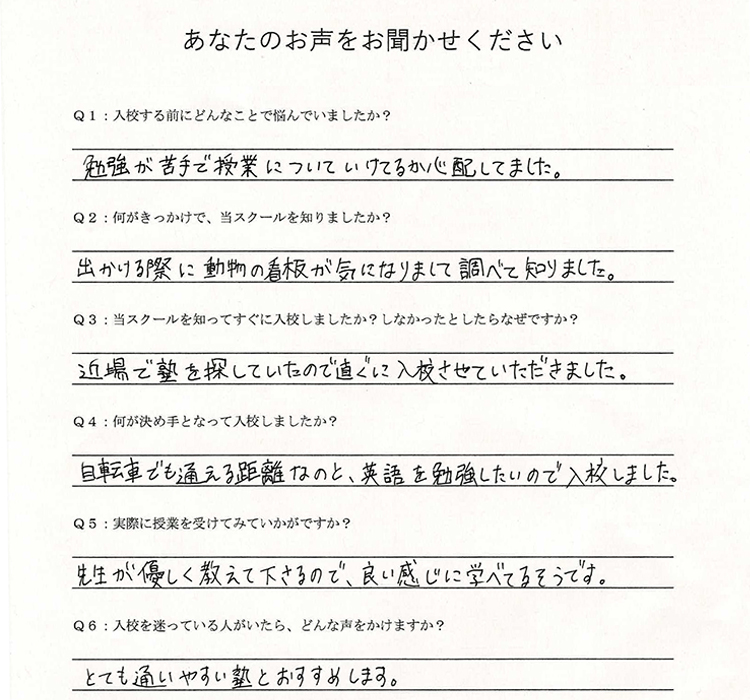 あなたのお声をお聞かせください
Q１：入校する前にどんなことで悩んでいましたか？
勉強が苦手で授業についていけてるか心配してました。
Q２：何がきっかけで、当スクールを知りましたか？
出かける際に動物の看板が気になりまして調べて知りました。
Q３：当スクールを知ってすぐに入校しましたか？しなかったとしたらなぜですか？
近場で塾を探していたので直ぐに入校させていただきました。
Q４：何が決め手となって入校しましたか？
自転車でも通える距離なのと、英語を勉強したいので入校しました。
Q５：実際に授業を受けてみていかがですか？
先生が優しく教えて下さるので、良い感じに学べてるそうです。
Q６：入校を迷っている人がいたら、どんな声をかけますか？
とても通いやすい塾とおすすめします。